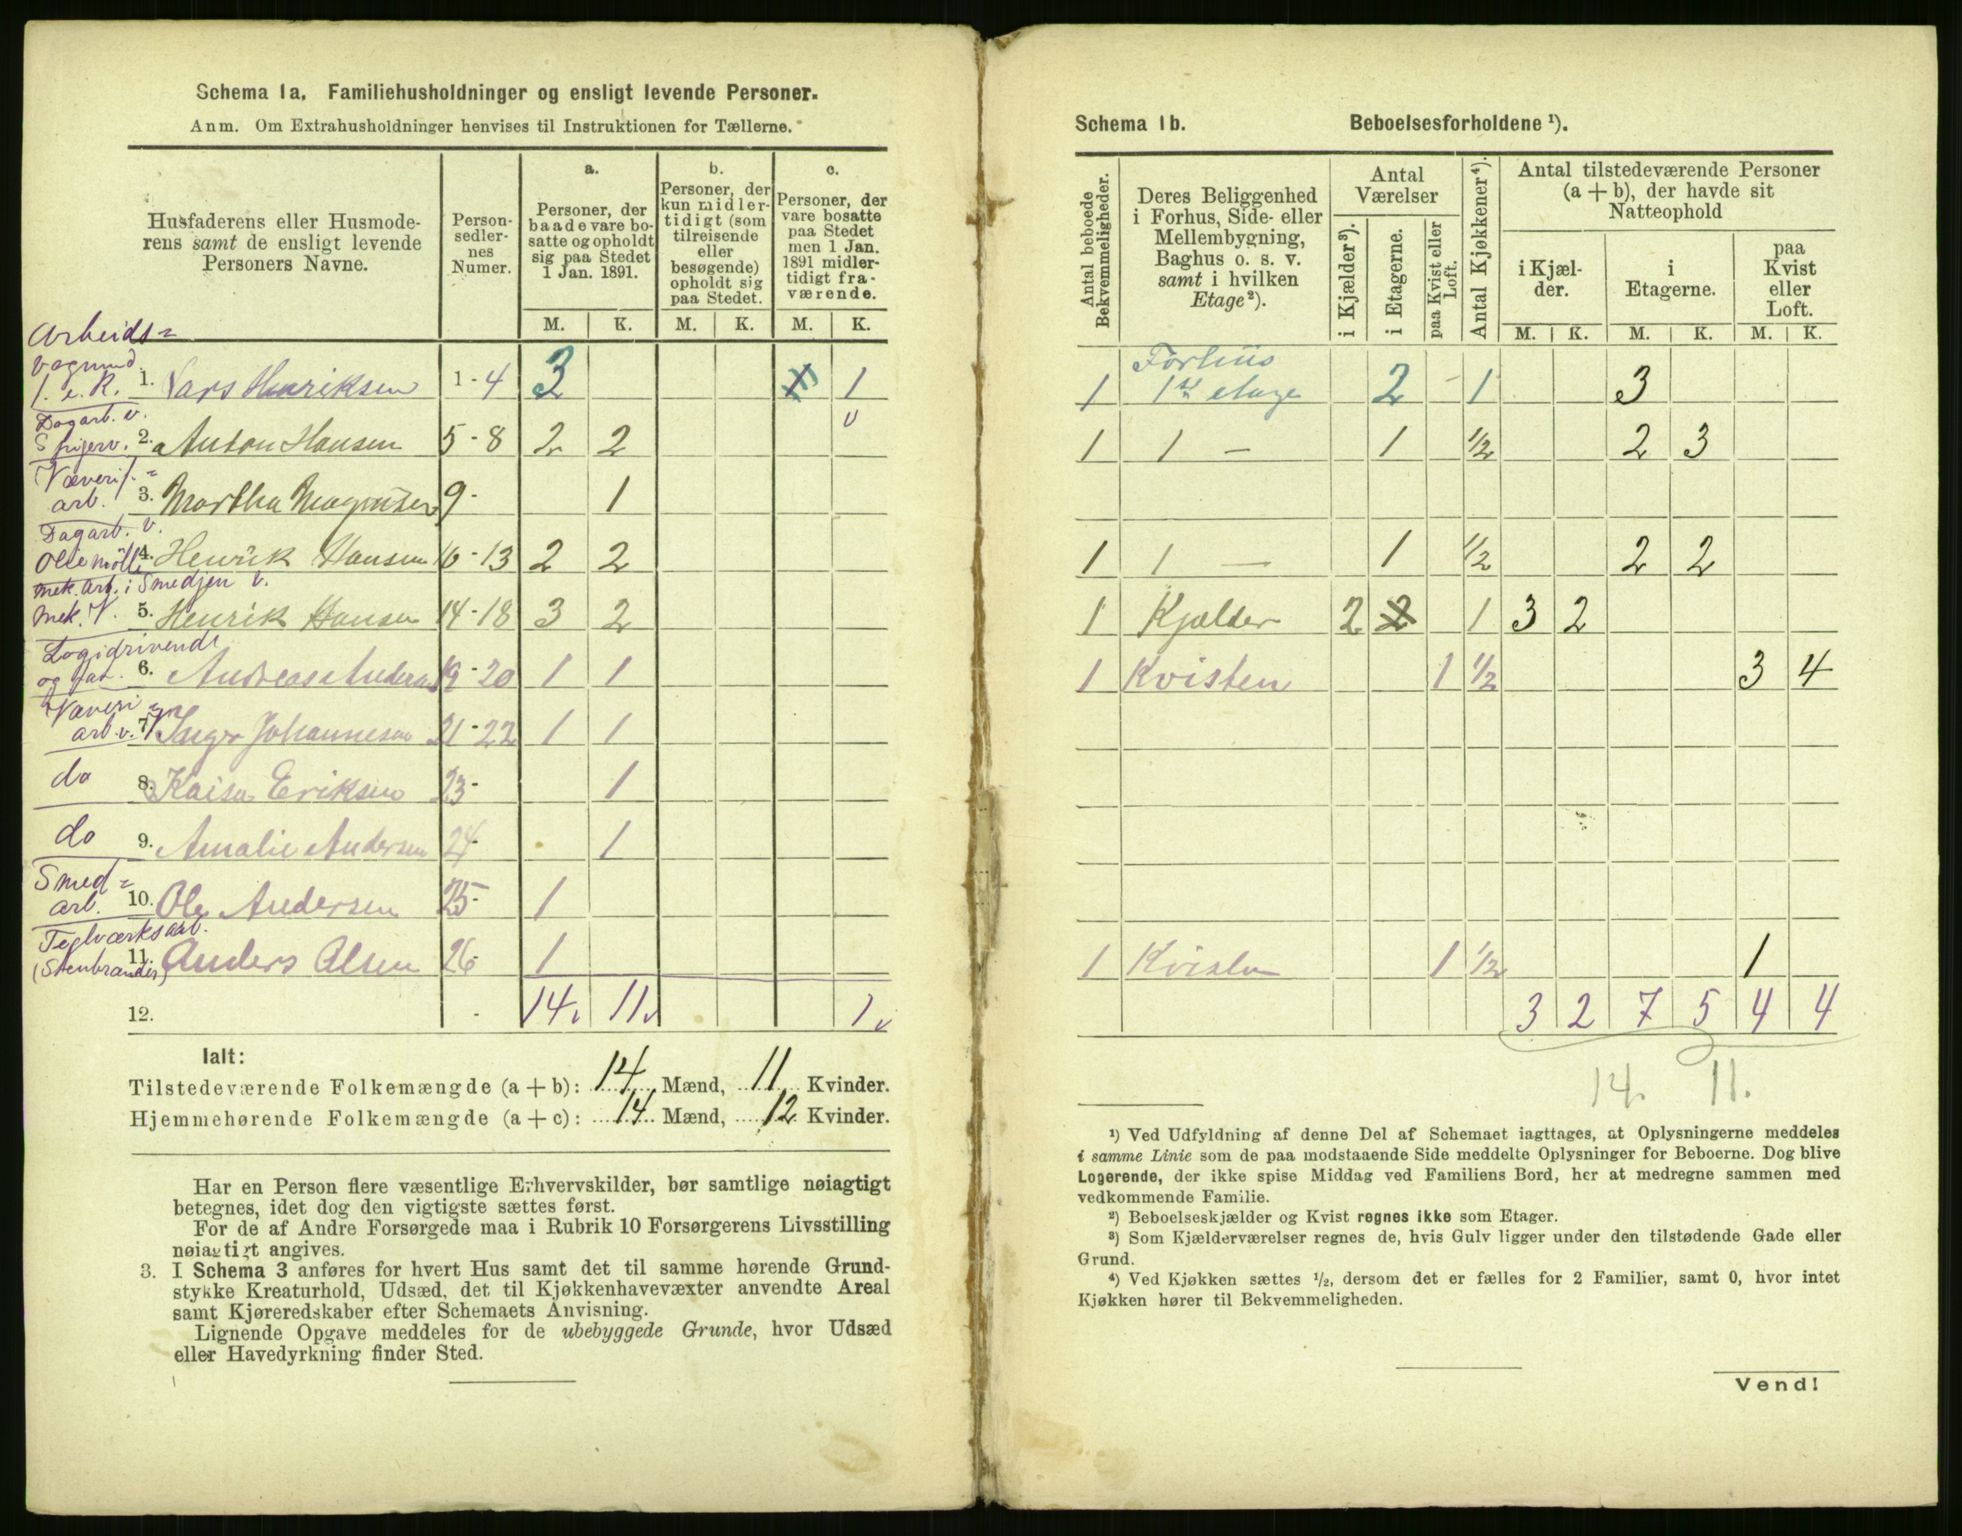 Schema 1a. Familiehusholdninger og ensligt levende Personer.
Anm. Om Extrahusholdninger henvises til Instruktionen for Tællerne.
Husfaderens eller Husmoderens samt de ensligt levende Personers Navne.
Personsedlernes Numer.
a. Personer, der baade vare bosatte og opholdt sig paa Stedet 1 Jan. 1891.
b. Personer, der kun midlertidigt (som tilreisende eller besøgende) opholdt sig paa Stedet.
c. Personer, der vare bosatte paa Stedet men 1 Jan. 1891 midlertidigt fraværende.
M. K. M. K. M. K.
Arbeids=
1. Lars Henriksen 1-4 3 1
Dagarb. v.
2. Anton Hansen 5-8 2 2
Væverif.=
arb. 3. Martha Magnusen 9- 1
Dagarb. v.
Ollemölle 4. Henrik Hansen 10-13 2 2
mek. arb. i Smedjen v.
mek. V. 5. Henrik Hansen 14-18 3 2
Logidrivende
6. Andreas Anders 19-20 1 1
Væveri=
arb. v. 7. Inger Johannesen 21-22 1 1
do 8. Kaisa Eriksen 23- 1
do 9. Amalie Andersen 24- 1
Smed=
arb. 10. Ole Andersen 25- 1
Teglværksarb.
(Stenbrænder) 11. Anders Olsen 26- 1
12. - 14 11 1
Ialt:
Tilstedeværende Folkemængde (a + b): 14 Mænd, 11 Kvinder.
Hjemmehørende Folkemængde (a + c): 14 Mænd, 12 Kvinder.
Har en Person flere væsentlige Erhvervskilder, bør samtlige nøiagtigt
betegnes, idet dog den vigtigste sættes først.
For de af Andre Forsørgede maa i Rubrik 10 Forsørgerens Livsstilling
nøiagtigt angives.
3. I Schema 3 anføres for hvert Hus samt det til samme hørende Grund-
stykke Kreaturhold, Udsæd, det til Kjøkkenhavevæxter anvendte Areal
samt Kjøreredskaber efter Schemaets Anvisning.
Lignende Opgave meddeles for de ubebyggede Grunde, hvor Udsæd
eller Havedyrkning finder Sted.
Schema 1b. Beboelsesforholdene ¹).
Antal beboede Bekvemmeligheder.
Deres Beliggenhed i Forhus, Side- eller Mellembygning, Baghus o. s. v. samt i hvilken Etage²).
Antal Værelser
i Kjælder³).
i Etagerne.
paa Kvist eller Loft.
Antal Kjøkkener⁴).
Antal tilstedeværende Personer (a + b), der havde sit Natteophold
i Kjælder.
i Etagerne.
paa Kvist eller Loft.
M. K. M. K. M. K.
Forhus
1 1ste etage 2 1 3
1 1 — 1 1/2 2 3
1 1 — 1 1/2 2 2
1 Kjælder 2 2 1 3 2
1 Kvisten 1 1/2 3 4
1 Kvisten 1 1/2 1
3 2 7 5 4 4
14. 11.
¹) Ved Udfyldning af denne Del af Schemaet iagttages, at Oplysningerne meddeles
i samme Linie som de paa modstaaende Side meddelte Oplysninger for Beboerne. Dog blive
Logerende, der ikke spise Middag ved Familiens Bord, her at medregne sammen med
vedkommende Familie.
²) Beboelseskjælder og Kvist regnes ikke som Etager.
³) Som Kjælderværelser regnes de, hvis Gulv ligger under den tilstødende Gade eller
Grund.
⁴) Ved Kjøkken sættes ½, dersom det er fælles for 2 Familier, samt 0, hvor intet
Kjøkken hører til Bekvemmeligheden.
Vend!